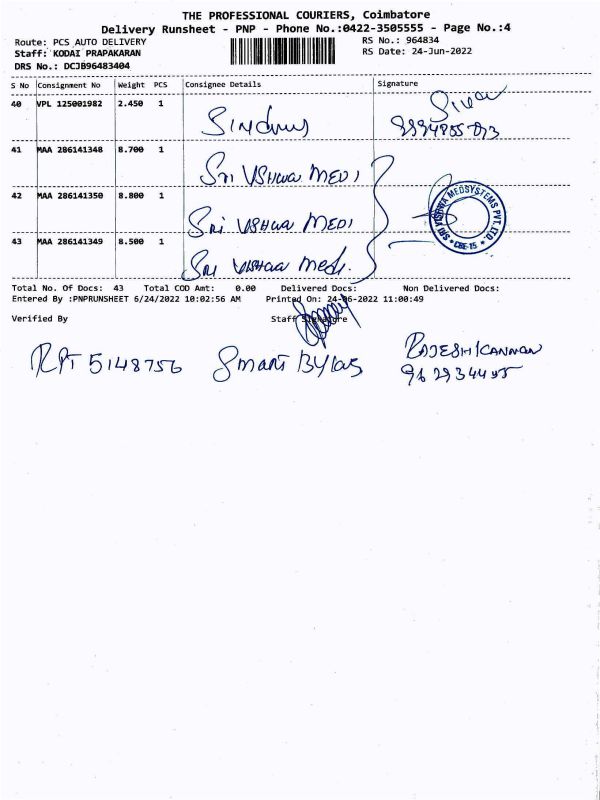 THE PROFESSIONAL COURIERS, Coimbatore
Delivery Runsheet - PNP - Phone No.:0422-3505555 - Page No.:4
Route: PCS AUTO DELIVERY
RS No.: 964834
Staff: KODAI PRAPAKARAN
RS Date: 24-Jun-2022
DRS No.: DCJB96483404
S No Consignment No Weight PCS Consignee Details Signature
40 VPL 125001982 2.450 1
41 MAA 286141348 8.700 1 SRI VSHWA MEDI
42 MAA 286141350 8.800 1 SRI VISHWA MEDI
SRI VISHWA MEDSYSTEMS PVT.LTD. CBE-15
43 MAA 286141349 8.500 1 SRI VISHWA Medi.
Total No. Of Docs: 43 Total COD Amt: 0.00 Delivered Docs: Non Delivered Docs:
Entered By :PNPRUNSHEET 6/24/2022 10:02:56 AM Printed On: 24-06-2022 11:00:49
Verified By Staff Signature
RPT 5148756 SMART RAJESH KANNAN